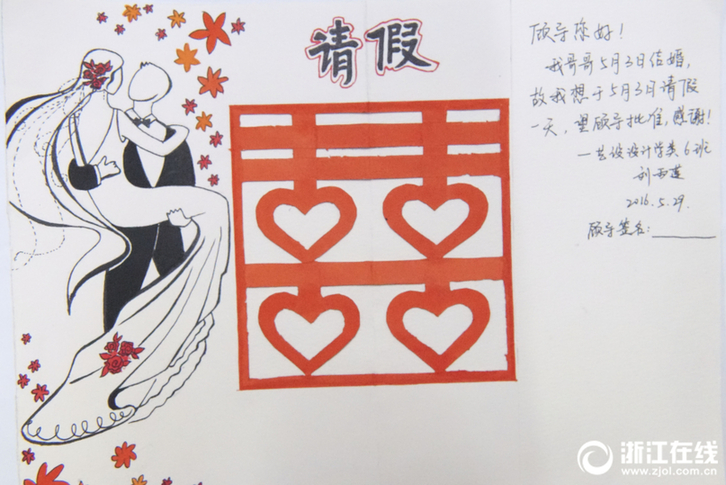 请假
顾导您好!
我哥哥5月3日结婚,
故我想于5月3日请假
一天,望顾导批准,感谢!
—艺设设计学类6班
刘雨莲
2016.5.29.
顾导签名:________
浙江在线
www.zjol.com.cn